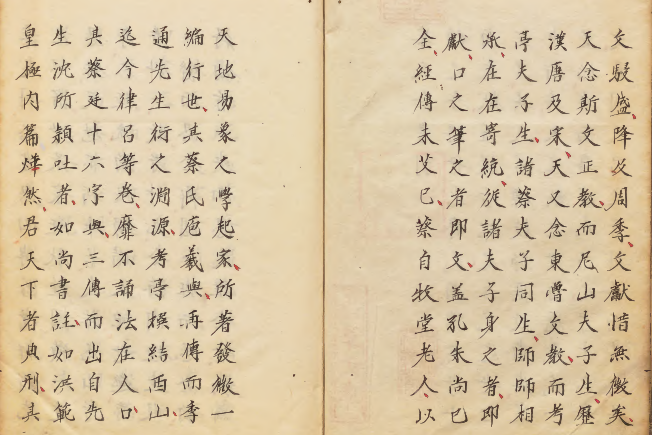 文駁盛降及周季文獻惜無徵矣
天念斯文正教而尼山夫子生歷
漢唐及宋天又念東魯文教而考
亭夫子生諸蔡夫子同生師師相
承在在寄統從諸夫子身之者即
獻口之筆之者即文蓋孔朱尚已
全經傳未艾已蔡自牧堂老人以
天地易象之學起家所著發微一
編行世其蔡氏庖羲與再傳而季
通先生衍之淵源考亭模結西山
迄今律呂等卷靡不誦法在人口
其蔡廷十六字與三傳而出自先
生沈所穎吐者如尚書註如洪範
皇極內篇燁然君天下者典刑具